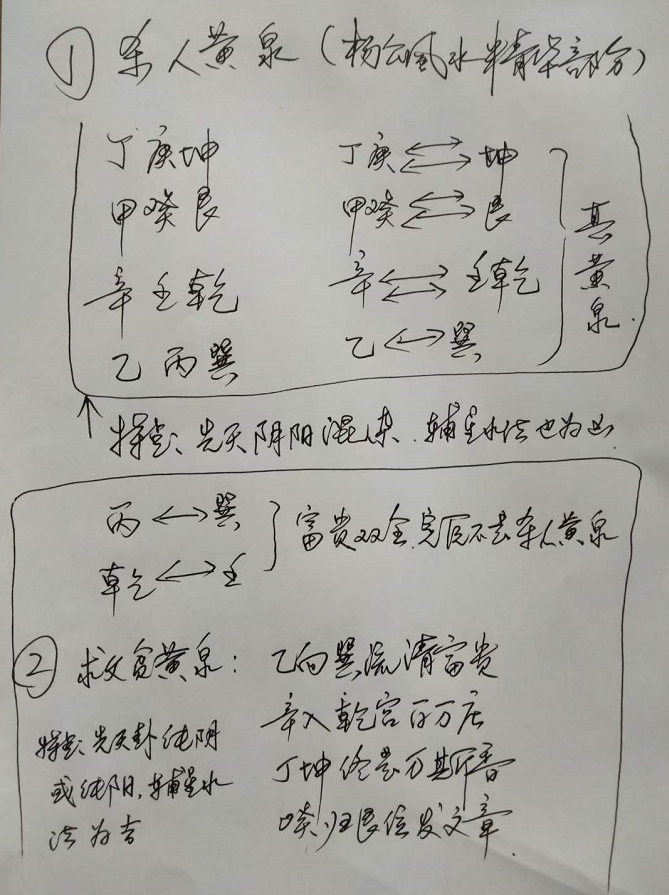 ① 杀人黄泉（杨公风水精华部分）
丁庚坤 丁庚⇌坤
甲癸艮 甲癸⇌艮
辛壬乾 辛⇌壬乾
乙丙巽 乙↔巽
真黄泉.
↑ 特点:先天阴阳混杂.辅星水法也为凶.
丙↔巽
乾↔壬
富贵双全,完全不是杀人黄泉
② 求贫黄泉: 乙向巽流清富贵
辛入乾宫百万庄
丁坤终是万斯香
癸归艮位发文章
特点:先天卦纯阴
或纯阳,辅星水
法为吉